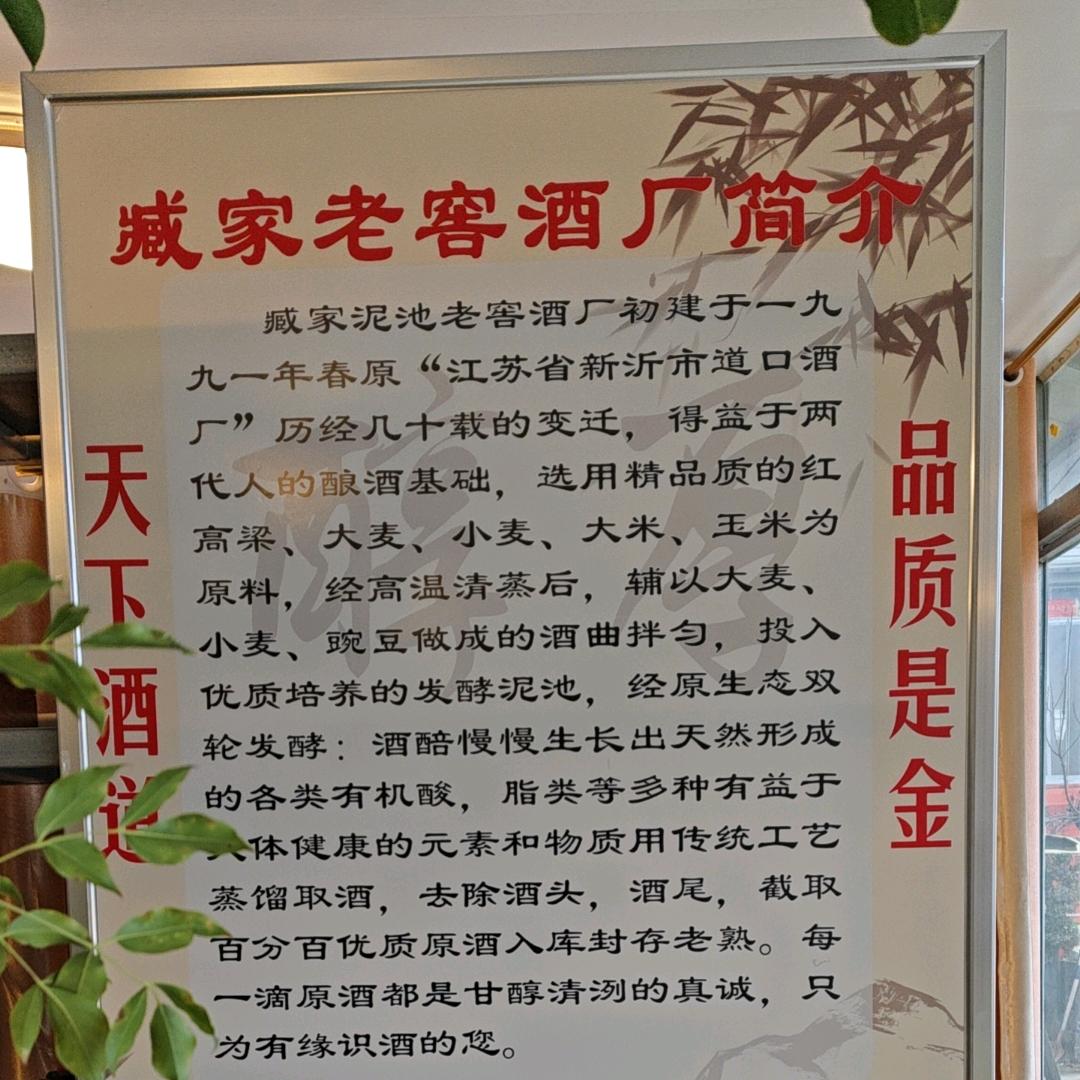 臧家老窖酒厂简介
臧家泥池老窖酒厂初建于一九
九一年春原“江苏省新沂市道口酒
厂”历经几十载的变迁，得益于两
代人的酿酒基础，选用精品质的红
高梁、大麦、小麦、大米、玉米为
原料，经高温清蒸后，辅以大麦、
小麦、豌豆做成的酒曲拌匀，投入
优质培养的发酵泥池，经原生态双
轮发酵：酒醅慢慢生长出天然形成
的各类有机酸，脂类等多种有益于
人体健康的元素和物质用传统工艺
蒸馏取酒，去除酒头，酒尾，截取
百分百优质原酒入库封存老熟。每
一滴原酒都是甘醇清洌的真诚，只
为有缘识酒的您。
天下酒道
品质是金
醇厚